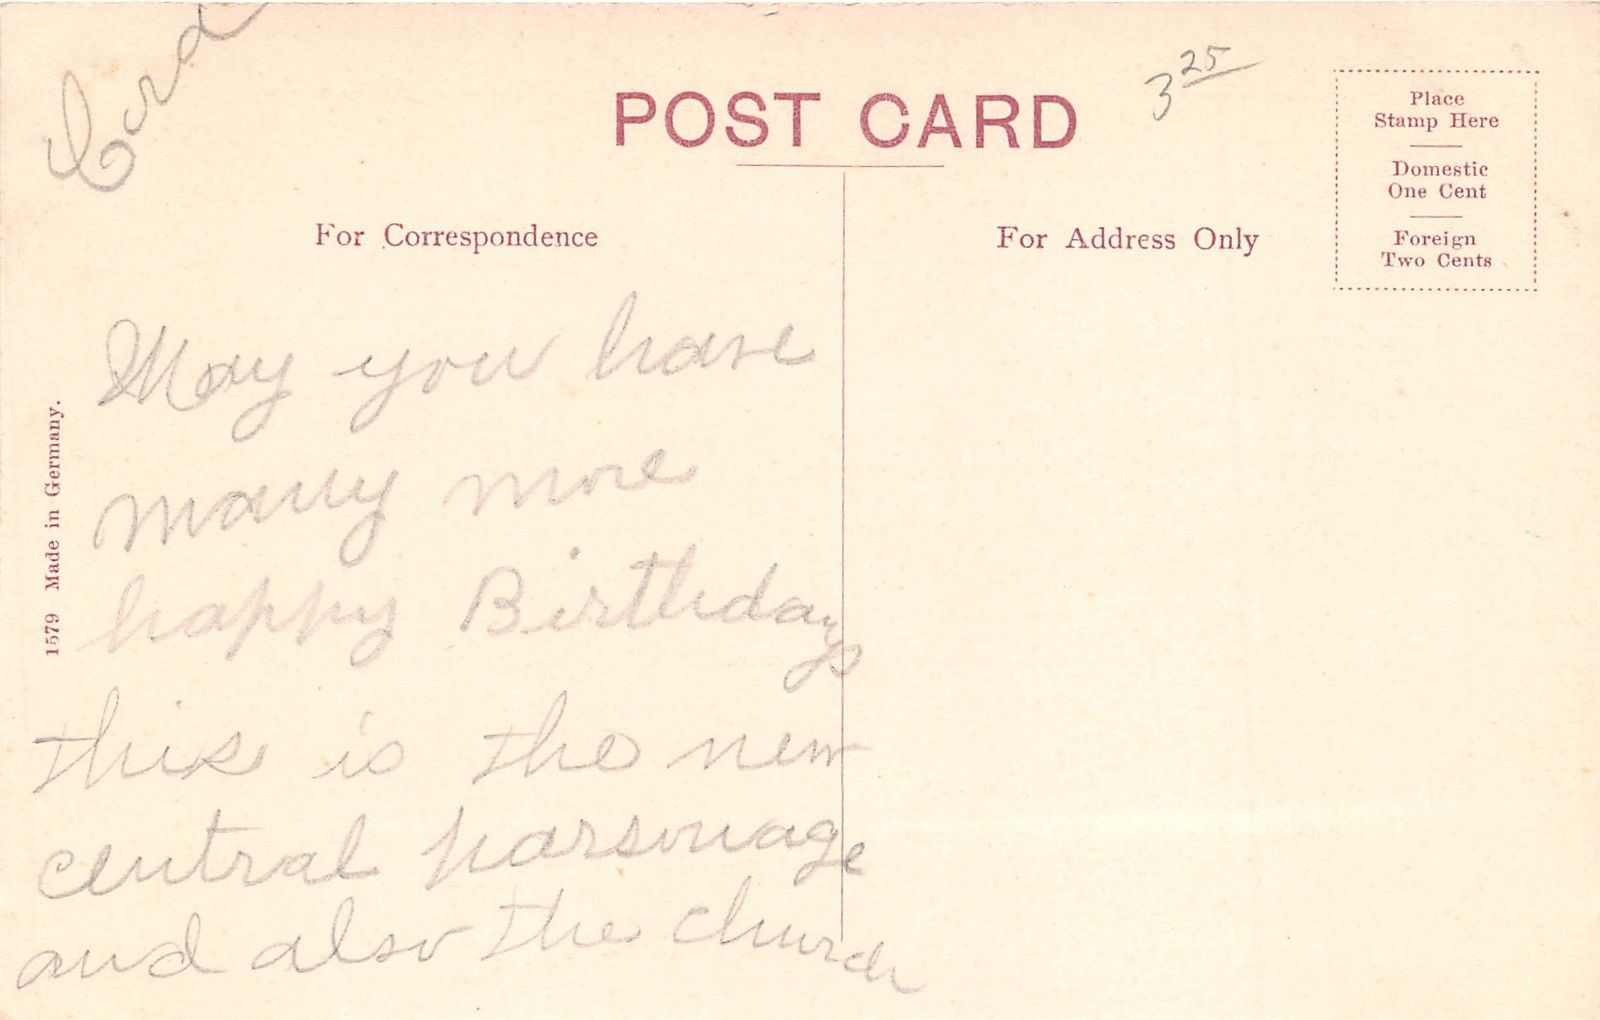 POST CARD
3 25
Place
Stamp Here
Domestic
One Cent
Foreign
Two Cents
For Correspondence
For Address Only
May you have
many more
happy Birthdays
this is the new
central parsonage
and also the church
1579 Made in Germany.